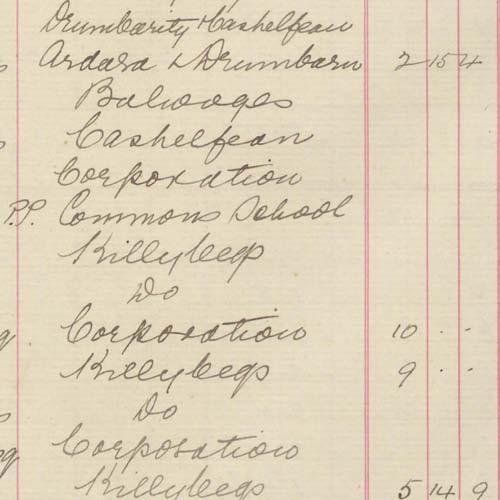 Drumbarity & Cashelfean
Ardara & Drumbarn 2 15 4
Balwoges
Cashelfean
Corporation
P.P. Commons School
Killybegs
Do
Corporation 10 . .
Killybegs 9 . .
Do
Corporation
Killybegs 5 14 9